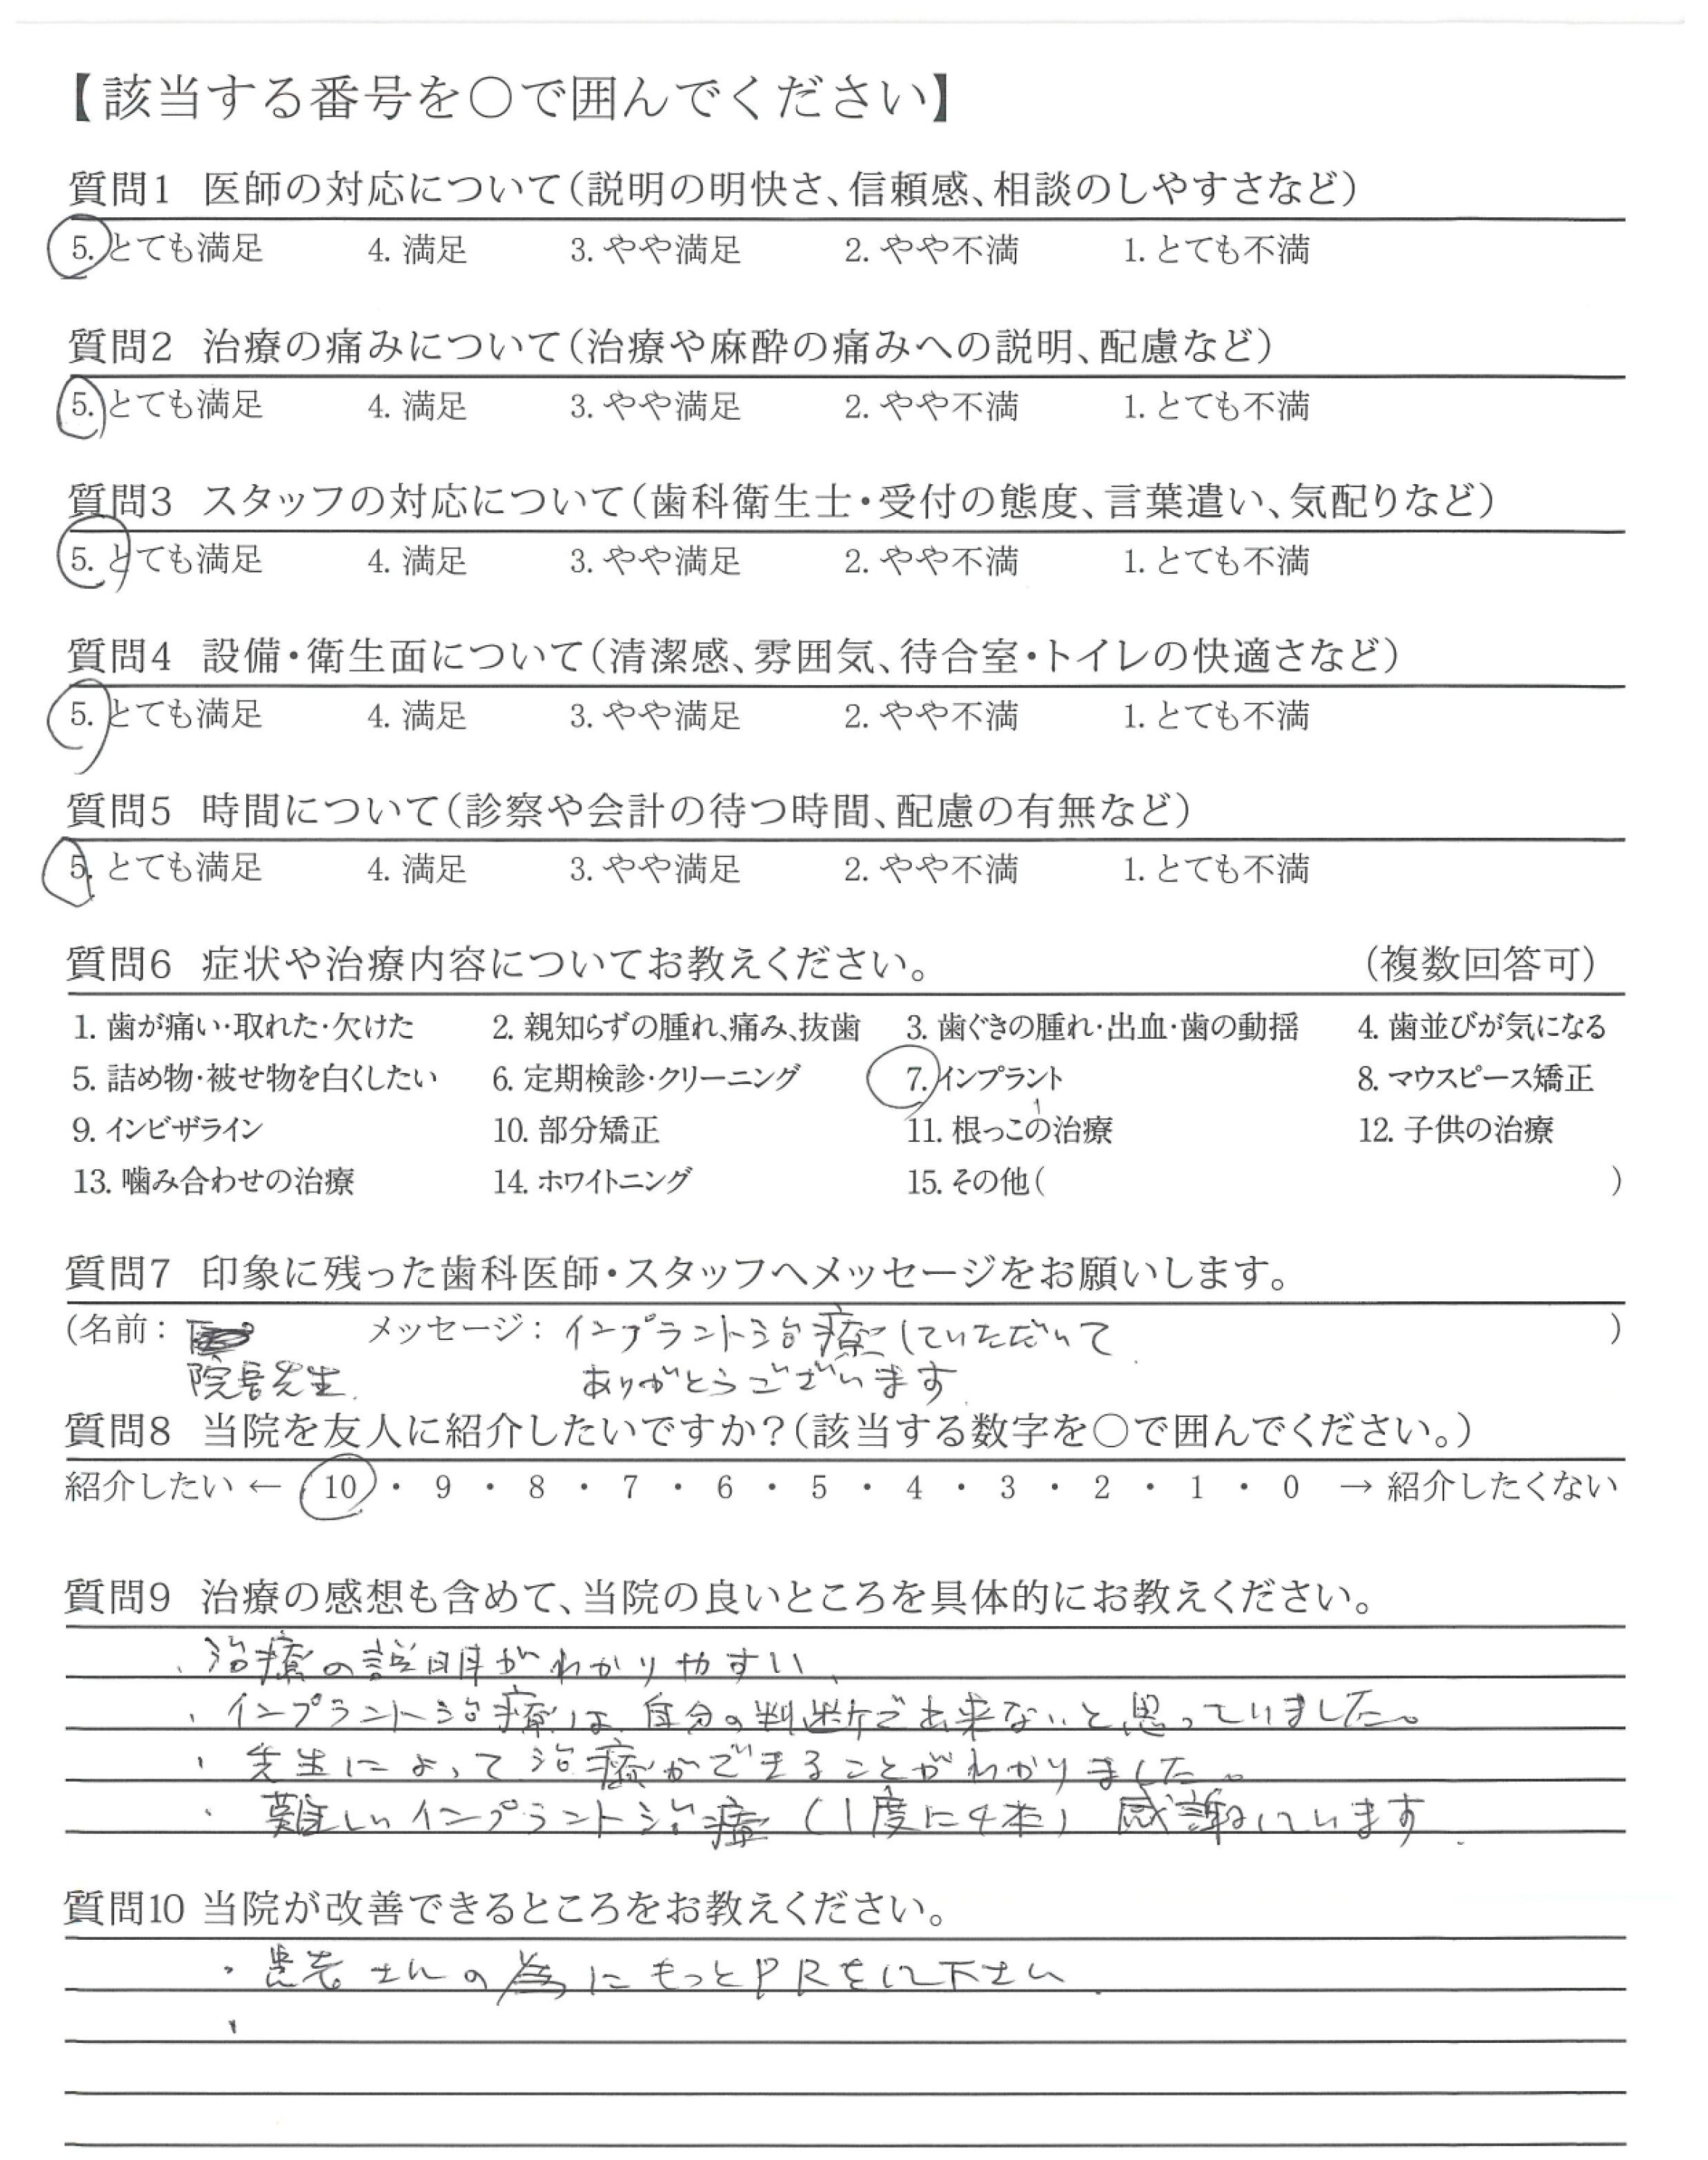 【該当する番号を○で囲んでください】
質問1 医師の対応について(説明の明快さ、信頼感、相談のしやすさなど)
5. とても満足 4. 満足 3. やや満足 2. やや不満 1. とても不満
質問2 治療の痛みについて(治療や麻酔の痛みへの説明、配慮など)
5. とても満足 4. 満足 3. やや満足 2. やや不満 1. とても不満
質問3 スタッフの対応について(歯科衛生士・受付の態度、言葉遣い、気配りなど)
5. とても満足 4. 満足 3. やや満足 2. やや不満 1. とても不満
質問4 設備・衛生面について(清潔感、雰囲気、待合室・トイレの快適さなど)
5. とても満足 4. 満足 3. やや満足 2. やや不満 1. とても不満
質問5 時間について(診察や会計の待つ時間、配慮の有無など)
5. とても満足 4. 満足 3. やや満足 2. やや不満 1. とても不満
質問6 症状や治療内容についてお教えください。 (複数回答可)
1. 歯が痛い・取れた・欠けた 2. 親知らずの腫れ、痛み、抜歯 3. 歯ぐきの腫れ・出血・歯の動揺 4. 歯並びが気になる
5. 詰め物・被せ物を白くしたい 6. 定期検診・クリーニング 7. インプラント 8. マウスピース矯正
9. インビザライン 10. 部分矯正 11. 根っこの治療 12. 子供の治療
13. 噛み合わせの治療 14. ホワイトニング 15. その他( )
質問7 印象に残った歯科医師・スタッフへメッセージをお願いします。
(名前: メッセージ: インプラント治療していただいて )
院長先生. ありがとうございます.
質問8 当院を友人に紹介したいですか?(該当する数字を○で囲んでください。)
紹介したい ← 10 ・ 9 ・ 8 ・ 7 ・ 6 ・ 5 ・ 4 ・ 3 ・ 2 ・ 1 ・ 0 → 紹介したくない
質問9 治療の感想も含めて、当院の良いところを具体的にお教えください。
・治療の説明がわかりやすい、
・インプラント治療は、自分の判断で出来ないと思っていました。
・先生によって治療ができることがわかりました。
・難しいインプラント治療(1度に4本)感謝しています.
質問10 当院が改善できるところをお教えください。
・患者さんの為にもっとPRをして下さい.
・